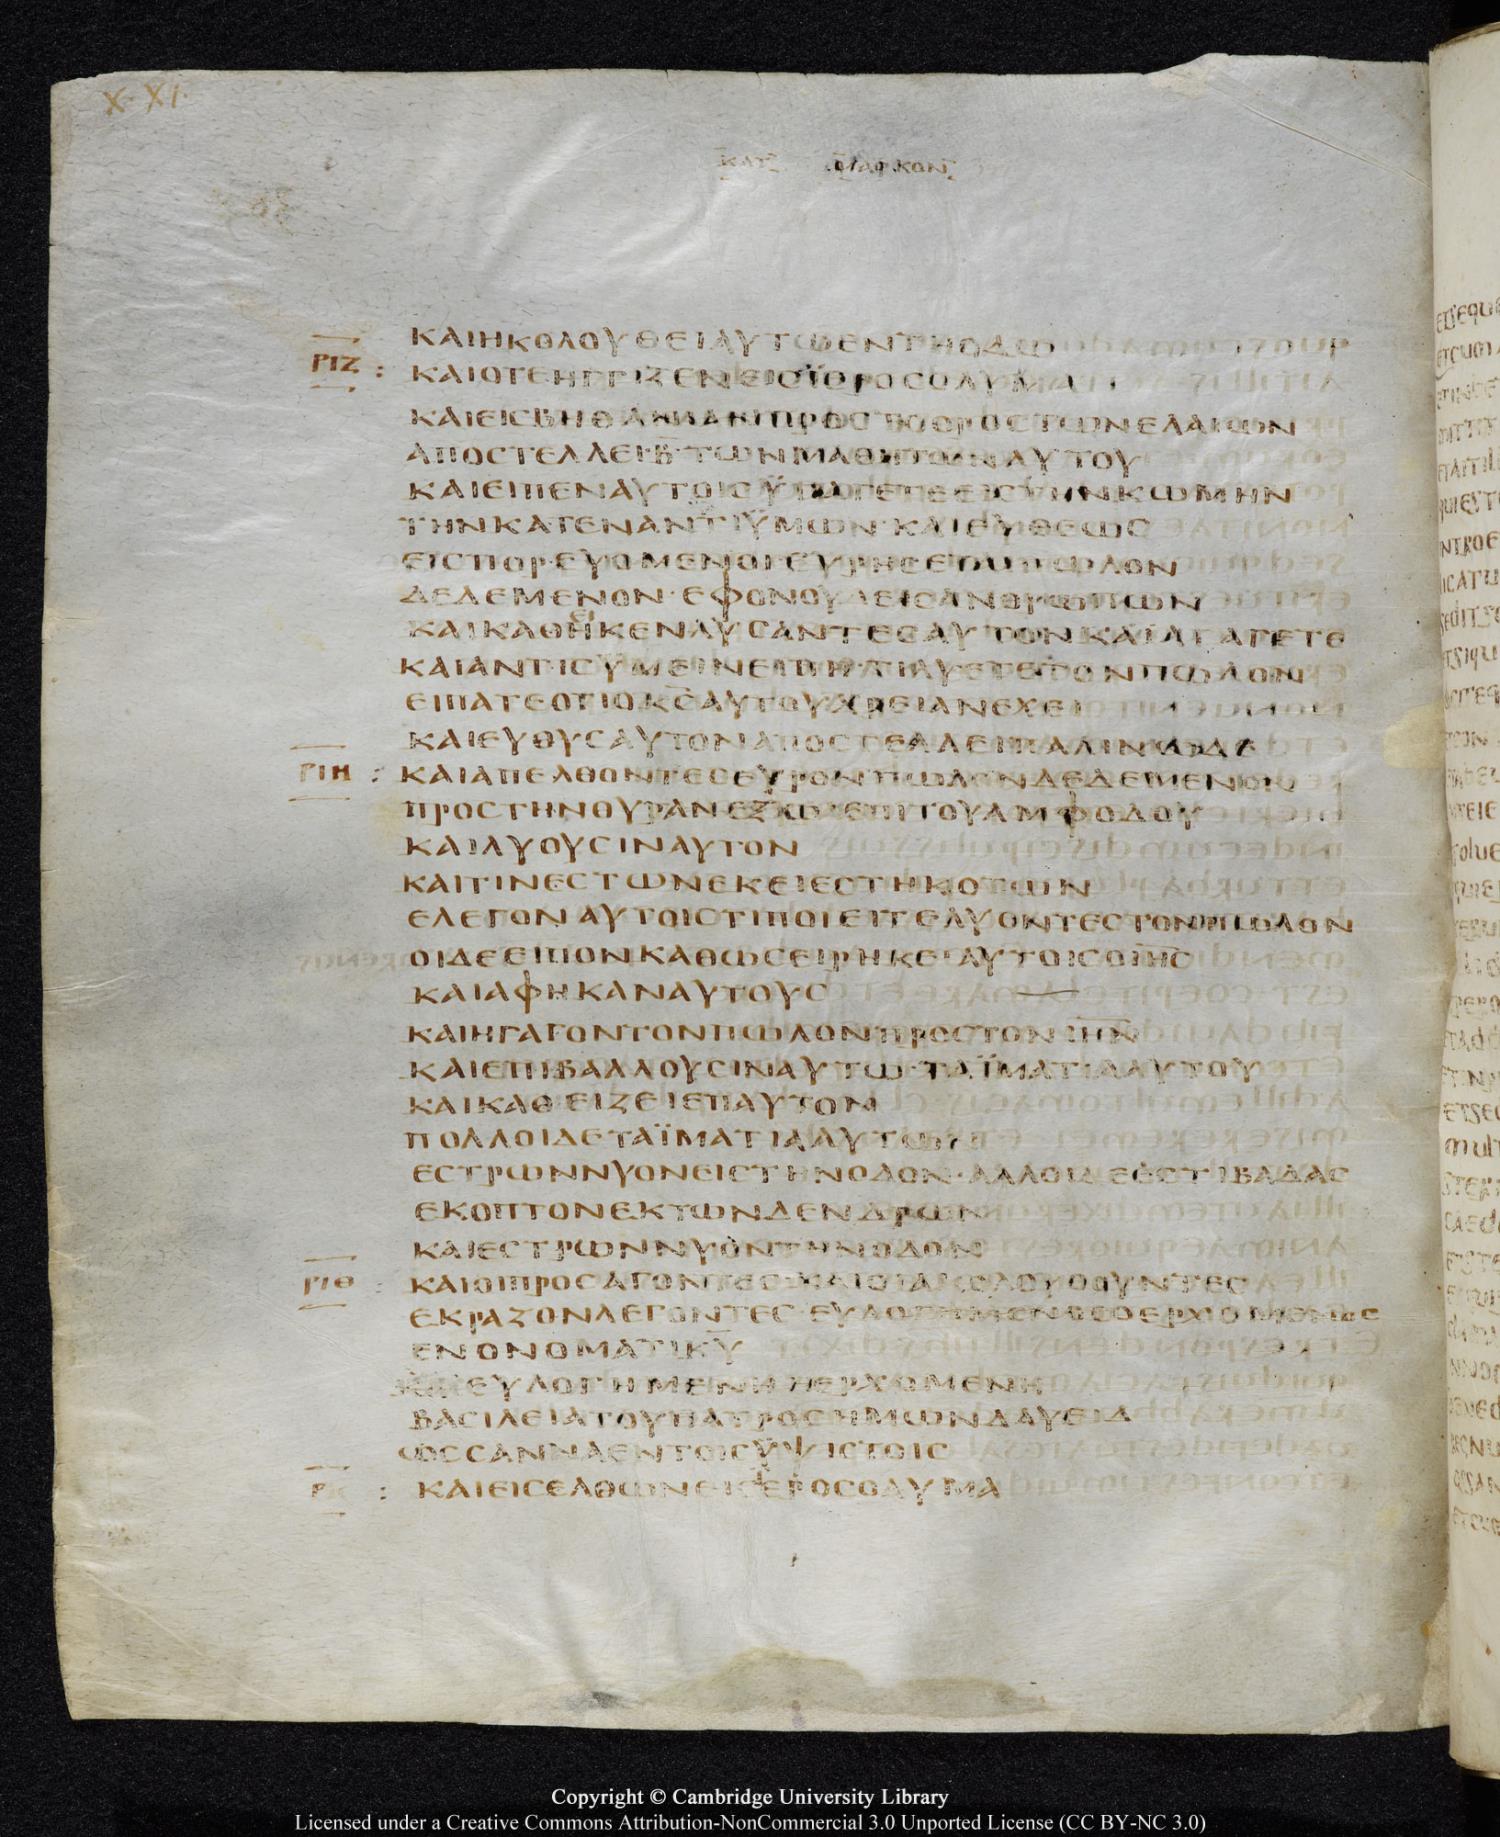 X·XI·
ΚΑΤ ΜΑΡΚΟΝ
ΚΑΙΗΚΟΛΟΥΘΕΙΑΥΤΩΕΝΤΗΟΔΩ
ΡΙΖ : ΚΑΙΟΤΕΗΓΓΙΖΕΝΕΙΣΪΕΡΟΣΟΛΥΜΑ
ΚΑΙΕΙΣΒΗΘΑΝΙΑΝΠΡΟΣΤΟΟΡΟΣΤΩΝΕΛΑΙΩΝ
ΑΠΟΣΤΕΛΛΕΙ·Β·ΤΩΝΜΑΘΗΤΩΝΑΥΤΟΥ
ΚΑΙΕΙΠΕΝΑΥΤΟΙΣΫΠΑΓΕΤΕΕΙΣΤΗΝΚΩΜΗΝ
ΤΗΝΚΑΤΕΝΑΝΤΙΫΜΩΝ·ΚΑΙΕΥΘΕΩΣ
ΕΙΣΠΟΡΕΥΟΜΕΝΟΙΕΥΡΗΣΕΤΑΙΠΩΛΟΝ
ΔΕΔΕΜΕΝΟΝ·ΕΦΟΝΟΥΔΕΙΣΑΝΘΡΩΠΩΝ
ΚΑΙΚΑΘΗΚΕΝΛΥΣΑΝΤΕΣΑΥΤΟΝΚΑΙΑΓΑΓΕΤΕ
ΚΑΙΑΝΤΙΣΥΜΕΙΝΕΙΠΗ·ΤΙΛΥΕΤΕΤΟΝΠΩΛΟΝ
ΕΙΠΑΤΕΟΤΙΟΚΣΑΥΤΟΥΧΡΕΙΑΝΕΧΕΙ
ΚΑΙΕΥΘΥΣΑΥΤΟΝΑΠΟΣΤΕΛΛΕΙΠΑΛΙΝΩΔΕ
ΡΙΗ : ΚΑΙΑΠΕΛΘΟΝΤΕΣΕΥΡΟΝΠΩΛΟΝΔΕΔΕΜΕΝΟΝ
ΠΡΟΣΤΗΝΘΥΡΑΝΕΞΩΕΠΙΤΟΥΑΜΦΟΔΟΥ
ΚΑΙΛΥΟΥΣΙΝΑΥΤΟΝ
ΚΑΙΤΙΝΕΣΤΩΝΕΚΕΙΕΣΤΗΚΟΤΩΝ
ΕΛΕΓΟΝΑΥΤΟΙΣΤΙΠΟΙΕΙΤΕΛΥΟΝΤΕΣΤΟΝΠΩΛΟΝ
ΟΙΔΕΕΙΠΟΝΚΑΘΩΣΕΙΡΗΚΕΙΑΥΤΟΙΣΟΙΗΣ
ΚΑΙΑΦΗΚΑΝΑΥΤΟΥΣ
ΚΑΙΗΓΑΓΟΝΤΟΝΠΩΛΟΝΠΡΟΣΤΟΝΙΗΝ
ΚΑΙΕΠΙΒΑΛΛΟΥΣΙΝΑΥΤΩ·ΤΑΪΜΑΤΙΑΑΥΤΟΥ
ΚΑΙΚΑΘΕΙΖΕΙΕΠΑΥΤΟΝ
ΠΟΛΛΟΙΔΕΤΑΪΜΑΤΙΑΑΥΤΩΝ
ΕΣΤΡΩΝΝΥΟΝΕΙΣΤΗΝΟΔΟΝ·ΑΛΛΟΙΔΕΕΣΤΙΒΑΔΑΣ
ΕΚΟΠΤΟΝΕΚΤΩΝΔΕΝΔΡΩΝ
ΚΑΙΕΣΤΡΩΝΝΥΟΝΤΗΝΟΔΟΝ
ΡΙΘ : ΚΑΙΟΙΠΡΟΣΑΓΟΝΤΕΣΚΑΙΟΙΑΚΟΛΟΥΘΟΥΝΤΕΣ
ΕΚΡΑΖΟΝΛΕΓΟΝΤΕΣ·ΕΥΛΟΓΗΜΕΝΟΣΟΕΡΧΟΜΕΝΟΣ
ΕΝΟΝΟΜΑΤΙΚΥ
ΕΥΛΟΓΗΜΕΝΗΗΕΡΧΟΜΕΝΗ
ΒΑΣΙΛΕΙΑΤΟΥΠΑΤΡΟΣΗΜΩΝΔΑΥΕΙΔ
ΩΣΣΑΝΝΑΕΝΤΟΙΣΫΨΙΣΤΟΙΣ
ΡΚ : ΚΑΙΕΙΣΕΛΘΩΝΕΙΣΙΕΡΟΣΟΛΥΜΑ
Copyright © Cambridge University Library
Licensed under a Creative Commons Attribution-NonCommercial 3.0 Unported License (CC BY-NC 3.0)